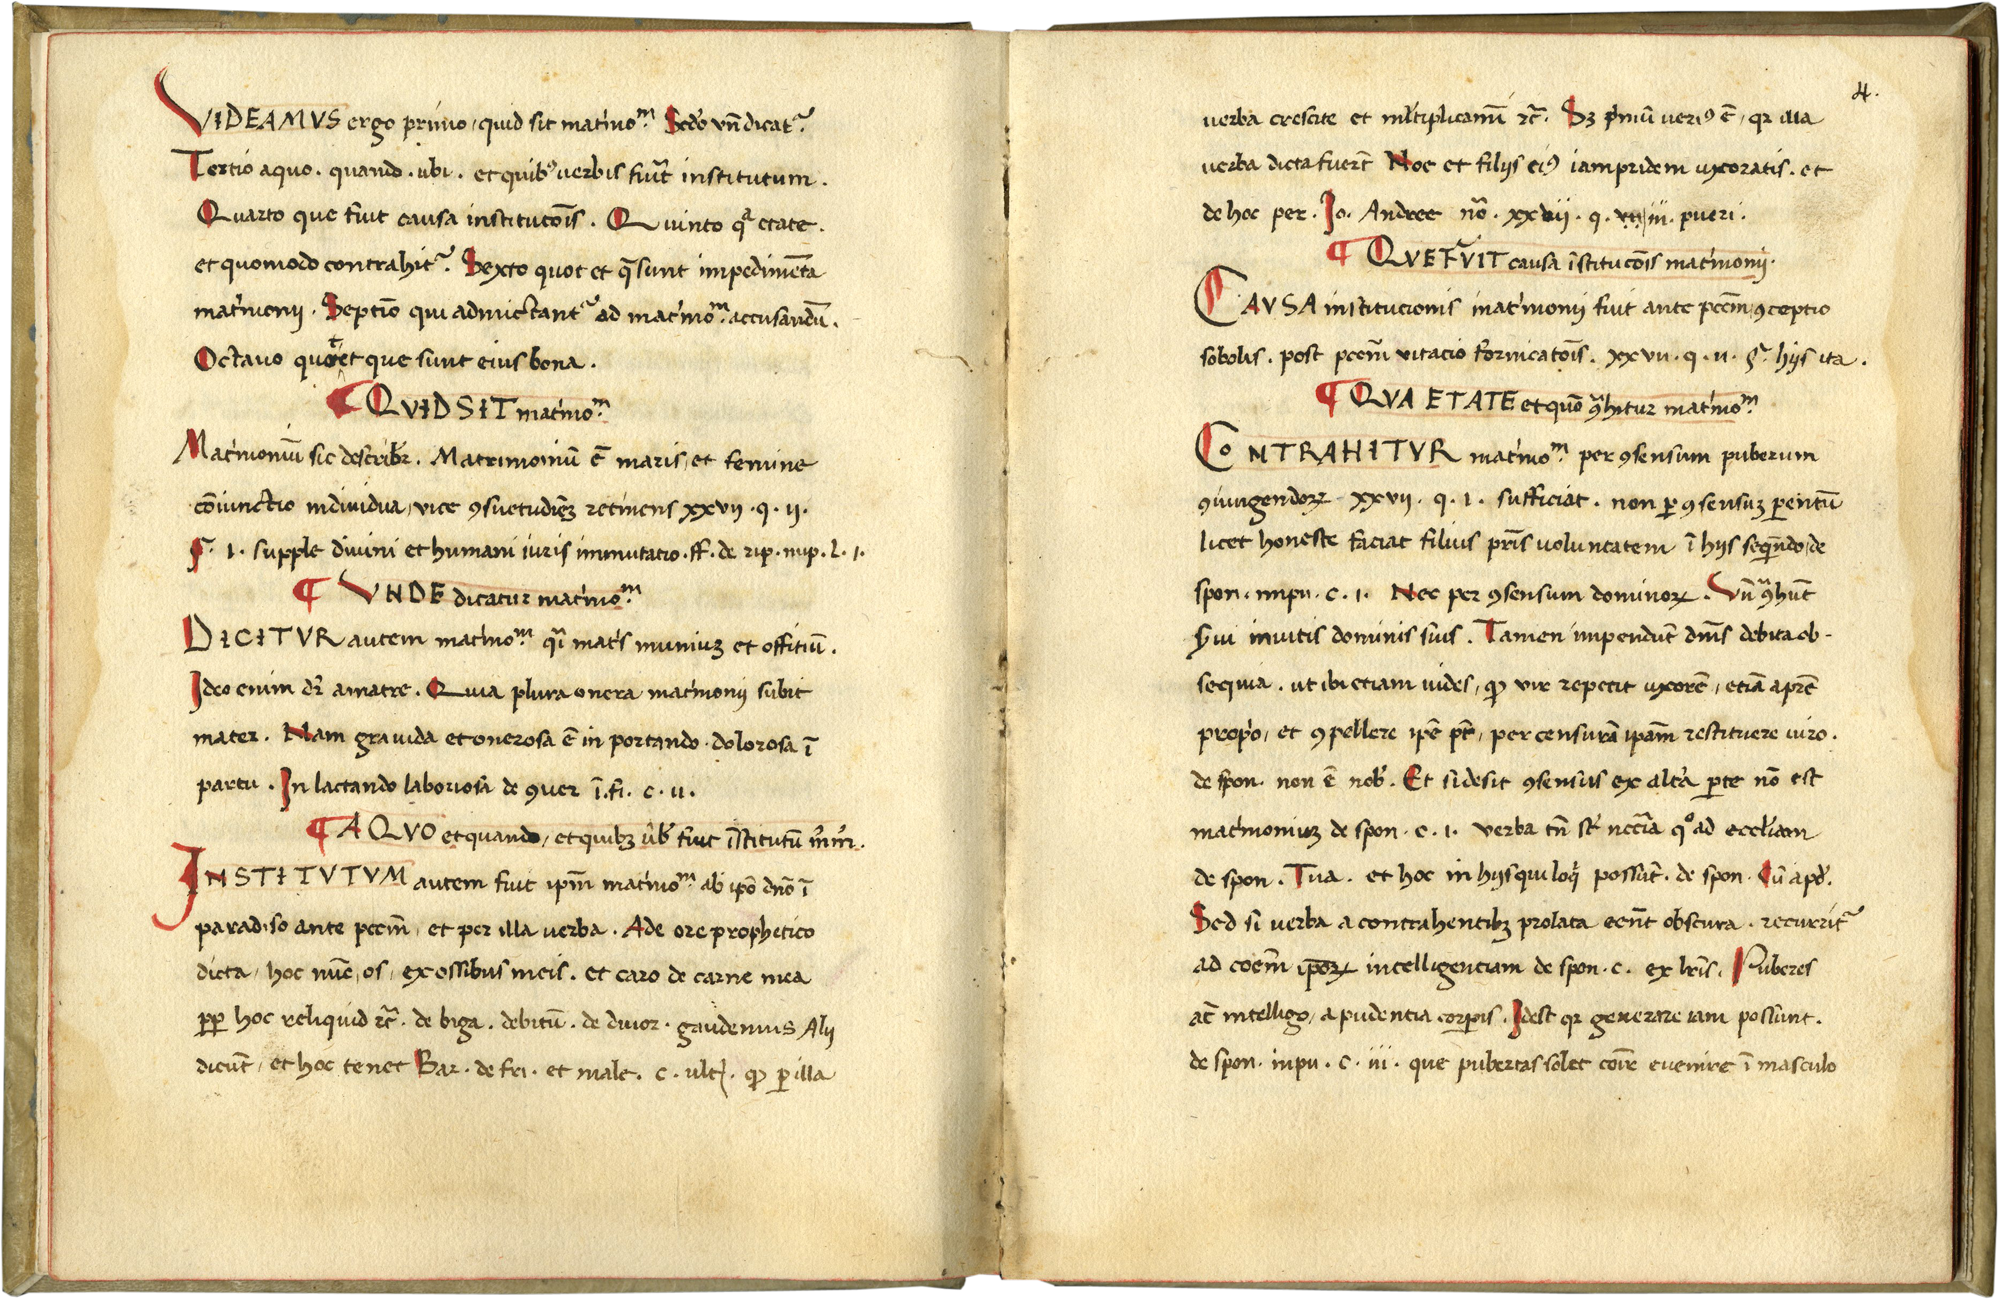 VIDEAMVS ergo primo, quid sit mat'imoᵐ. Sc̃do vñ dicat᷑.
Tertio a quo. quando. ubi. et quibꝰ verbis fuit̃ institutum.
Quarto que fuit causa institucōis. Quinto qͣ etate.
et quomodo contrahit᷑. Sexto quot et q̃ sunt impedimēta
mat'imonij. Septīo qui admictant᷑ ad mat'imoᵐ. accusandū.
Octauo quot et que sunt eius bona.
¶ QVID SIT mat'imoᵐ.
Mat'imoniū sic describit᷑. Matrimoniū ē maris, et femine
cōiunctio indiuidua, vite ꝯsuetudinēꝫ retinens xxvii. q. ii.
§. 1. supple diuini et humani iuris immutatio. ff. de rip. nup. l. 1.
¶ VNDE dicatur mat'imoᵐ.
DICITVR autem mat'imoᵐ. qͣi mat'is muniuꝫ et offitiū.
Ideo enim dr̃ a matre. Quia plura onera mat'imonij subit
mater. Nam grauida et onerosa ē in portando. dolorosa ī
partu. In lactando laboriosa de ꝯuer ī. fi. c. ii.
¶ A QVO et quando, et quibꝫ v̄b' fuit īstitutū m̄r̄m̄.
INSTITVTVM autem fuit ip̃m mat'imoᵐ. ab ip̃o dño ī
paradiso ante pcc̃m, et per illa verba. Ade ore prophetico
dicta, hoc nūc, os, ex ossibus meis. et caro de carne mea
ꝓp̃ hoc reliquid ꝛc̃. de biga. debitū. de diuor. gaudemus Alij
dicūt, et hoc tenet Bar. de fri. et male. c. ult'. ꝙ ꝑ illa
4.
verba crescite et ml̃tiplicamĩ ꝛc̃. Sꝫ pͥmū verıꝰ ē, qꝛ illa
verba dicta fuer̃t Noe et filijs eiꝰ iampridem uxoratis. et
de hoc per. Jo. Andree nō. xxvii. q. iii. pueri.
¶ QVE FVIT causa īstitucōis mat'imonij.
CAVSA institucionis mat'imonij fuit ante pcc̃m, ꝯceptio
sobolis. post pcc̃m vitacio fornicatōis. xxvii. q. ii. §. hijs ita.
¶ QVA ETATE et quō ꝯͣhitur mat'imoᵐ.
CONTRAHITVR mat'imoᵐ. per ꝯsensum puberum
ꝯiungendoꝝ xxvii. q. 1. sufficiat. non ꝑ ꝯsensuꝫ ꝑentū
licet honeste faciat filius pr̃is voluntatem ī hijs seqũendo, de
spon. impu. c. 1. Nec per ꝯsensum dominoꝝ. Vñ ꝯͣhūt
s̃ui inuitis dominis suis. Tamen impendūt dñis debita ob-
sequia. ut ibi etiam uides, ꝙ vir repetit uxorē, etiā a pr̃e
prop̃o, et ꝯpellere ip̃e pt̃, per censurā ip̃am restituere uiro.
de spon. non ē nob̃. Et si desit ꝯsensus ex alt'a ꝑte nō est
mat'imoniuꝫ de spon. c. 1. verba tñ st̃ necc̃ia qͦad eccl'iam
de spon. Tua. et hoc in hijs qui loqͥ possūt. de spon. Cū apd̃.
Sed si verba a contrahentibꝫ prolata eēnt obscura. recurrit᷑
ad cōem̃ ip̃oꝝ intelligenciam de spon. c. ex lr̃is. Puberes
ac̃ intelligo, a pudentia corꝑis. Idest qꝛ generare iam possunt.
de spon. inpu. c. iii. que pubertas solet cōīr̃e euenire ī masculo